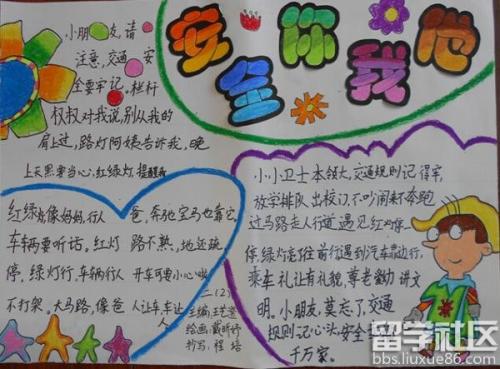 安全你我他
小朋友,请
注意,交通安
全要牢记。栏杆
叔叔对我说,别从我的
肩上过,路灯阿姨告诉我,晚
上天黑要当心,红绿灯,提醒我
红绿灯像妈妈,行人
车辆要听话。红灯
停,绿灯行,车辆行人
不打架。大马路,像爸
爸,奔驰宝马也靠它,
路不熟,地还跳
开车可要小心
人让车,车让
人
二(2)
主编:王艺萱
绘画:戴昕妤
抄写:程培
小小卫士本领大,交通规则记得牢,
放学排队出校门,不吵闹来不奔跑
过马路走人行道,遇见红灯停一停
停,绿灯走,行走前行遇到汽车靠边行,
乘车礼让有礼貌,尊老爱幼讲文
明。小朋友,莫忘了,交通
规则记心头,安全
千万家。
留学社区
bbs.liuxue86.com